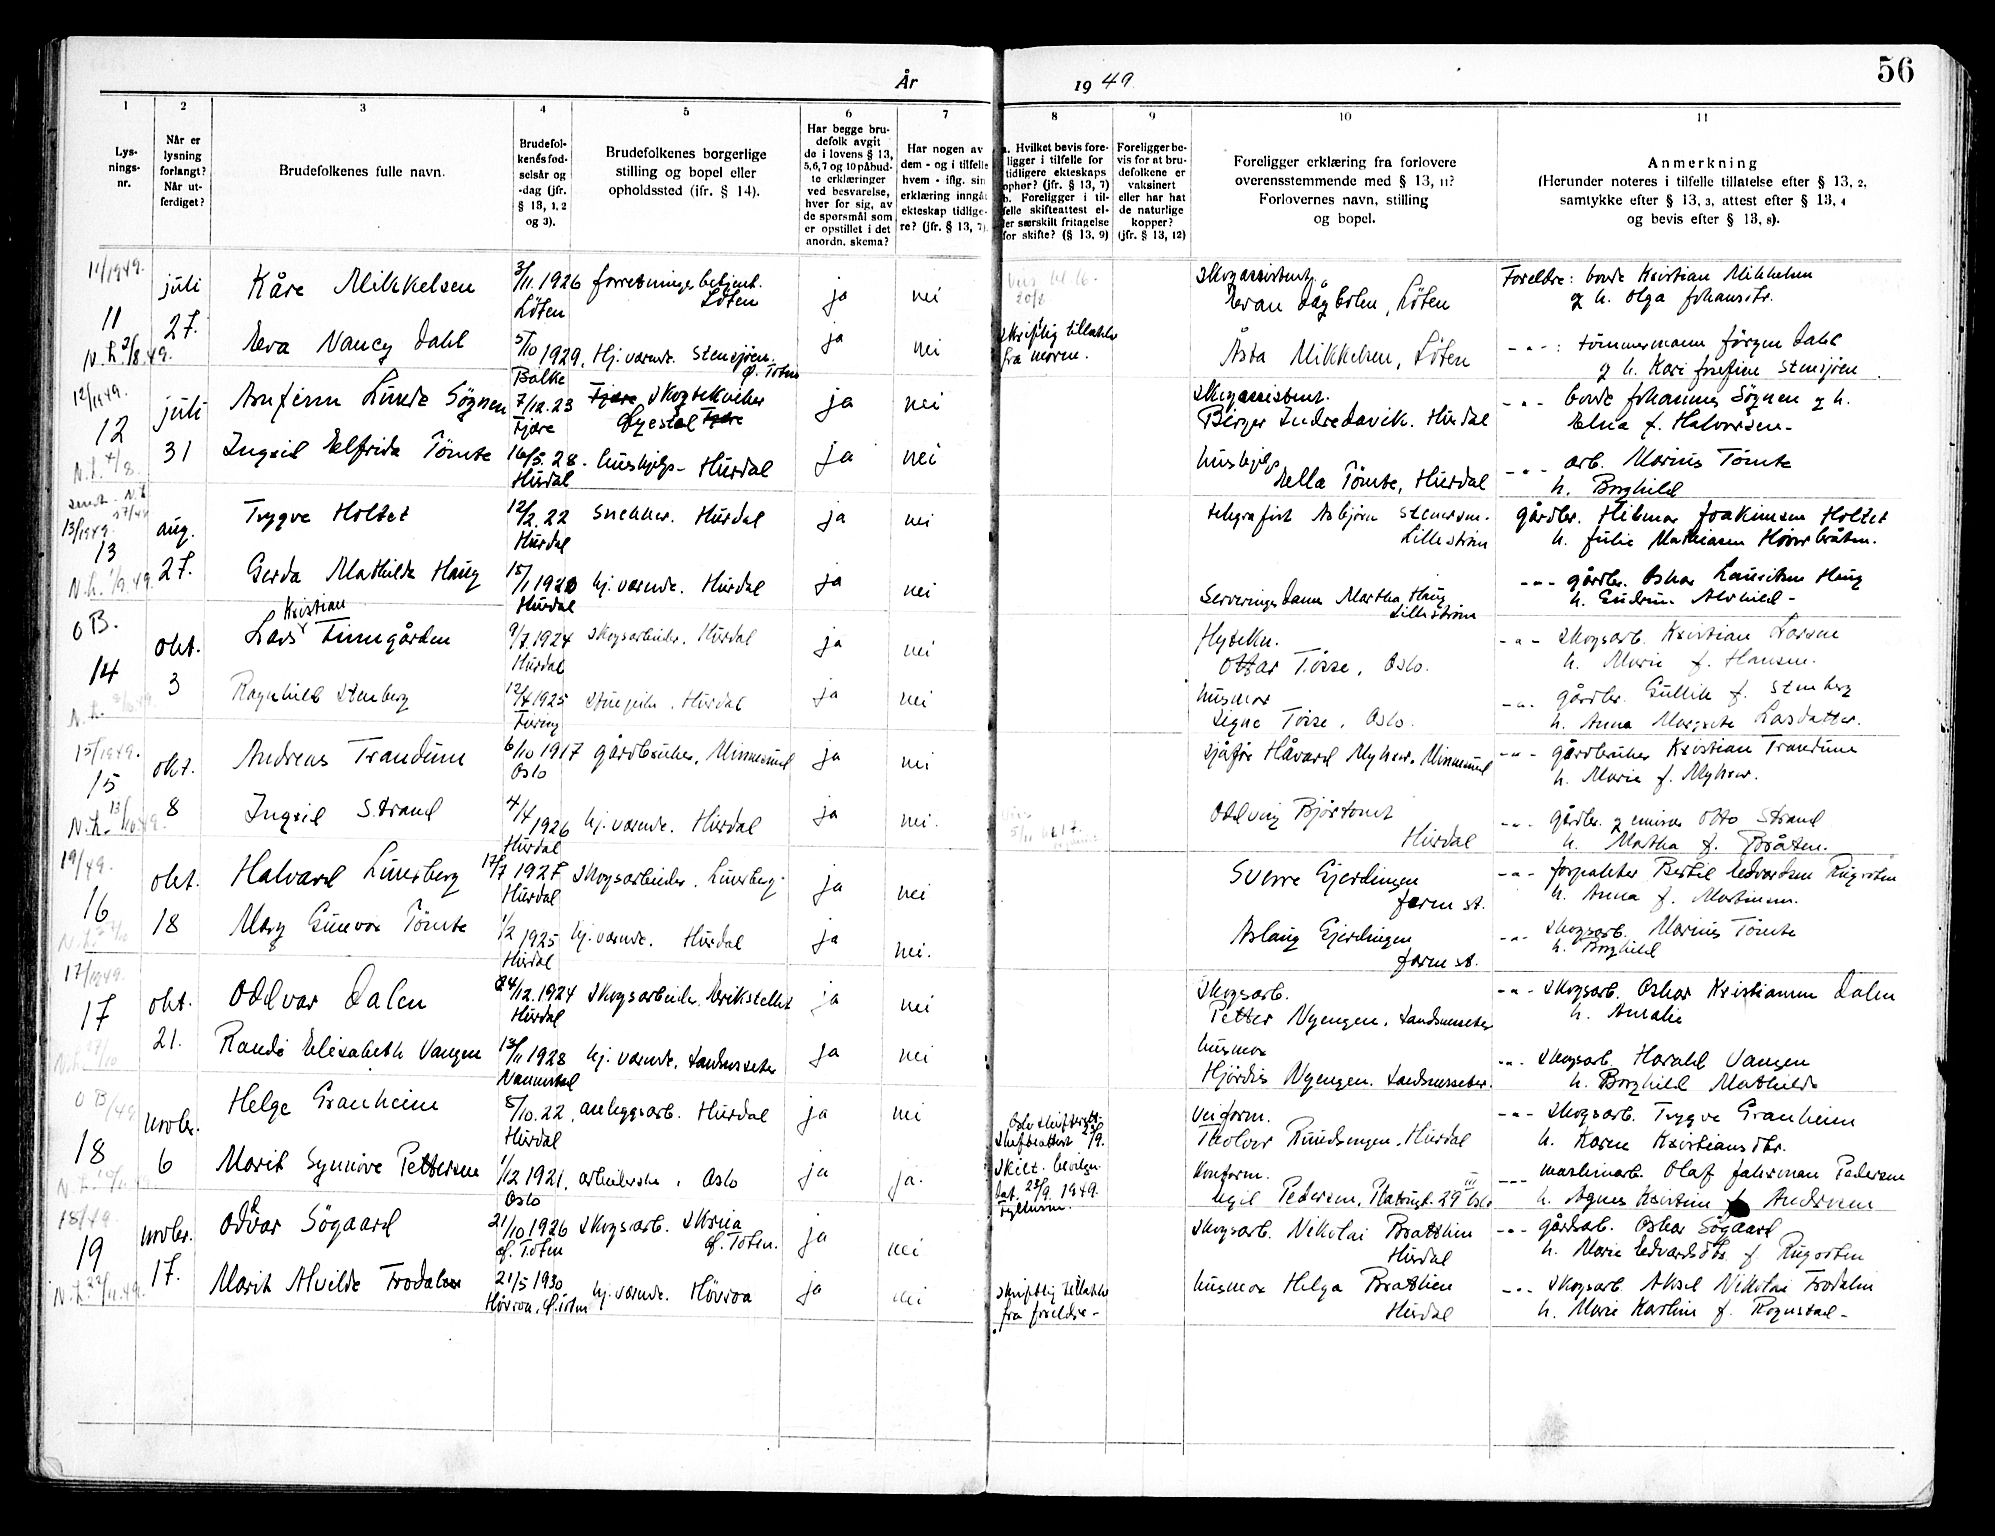 56
År 1949
1 2 3 4 5 6 7 8 9 10 11
Lysningsnr.
Når er lysning forlangt? Når utferdiget?
Brudefolkenes fulle navn.
Brudefolkenes fødselsår og -dag (jfr. § 13, 1, 2 og 3).
Brudefolkenes borgerlige stilling og bopel eller opholdssted (ifr. § 14).
Har begge brudefolk avgit de i lovens § 13, 5,6,7 og 10 påbudte erklæringer ved besvarelse, hver for sig, av de spørsmål som er opstillet i det anordn. skema?
Har nogen av dem - og i tilfelle hvem - iflg. sin erklæring inngått ekteskap tidligere? (jfr. § 13, 7).
a. Hvilket bevis foreligger i tilfelle for tidligere ekteskaps ophør? (jfr. § 13, 7) b. Foreligger i tilfelle skifteattest eller særskilt fritagelse for skifte? (§ 13, 9)
Foreligger bevis for at brudefolkene er vaksinert eller har hat de naturlige kopper? (jfr. § 13, 12)
Foreligger erklæring fra forlovere overensstemmende med § 13, 11? Forlovernes navn, stilling og bopel.
Anmerkning (Herunder noteres i tilfelle tillatelse efter § 13, 2, samtykke efter § 13, 3, attest efter § 13, 4 og bevis efter § 13, 8).
11/1949. juli Kåre Mikkelsen 3/11. 1926 Löten forretningsbetjent. Löten ja nei skogassistent, Løten Foreldre: bonde Kristian Mikkelsen
og h. Olga Johansdtr.
11 27. Eva Nancy Dahl 5/10 1929, Balke Hj. værende. Stensjøen. Ø. Toten ja nei skriftlig tillatelse fra morn. Åsta Mikkelsen, Löten -"-: tömmermann Jörgen Dahl
N.L. 2/8.49. og h. Kari Josefine Stensjöen.
12/1949. juli Arnfinn Linde Sögnen 7/12.23 Fjære skogtekniker Øyestad ja nei skogassistent. Birger Indredavik. Hurdal -"- bonde Johannes Sögnen og h.
Elna f. Halvorsen-
12 31 Ingrid Elfrida Tömte 16/5.28. Hurdal hushjelp- Hurdal ja nei hushjelp Nella Tömte, Hurdal -"- arb. Marius Tömte
N.L. 4/8. h. Borghild
13/1949. aug. Trygve Holtet 12/2.22 Hurdal snekker. Hurdal ja nei telegrafist Asbjörn Stenersen. Lilleström gårdbr. Hilmar Joakimsen Holtet
h. Julie Mathiasen
13 27. Gerda Mathilde Haug 15/1 1920 Hurdal hj. værende. Hurdal ja nei Serveringsdame Martha Haug Lilleström -"- gårdbr. Oskar Lauritsen Haug
N.L. 1/9.49. h. Gudrun Alvhild-
OB. okt. Lars Kristian Finngården 9/7.1924 Hurdal skogsarbeider. Hurdal ja nei Flytekn. Ottar Tosse, Oslo. -"- skogsarb. Kristian Larsen
h. Marie f. Hansen.
14 3 Ragnhild Stenberg 12/4 1925 Feiring stuepike. Hurdal ja nei husmor Signe Tosse, Oslo. -"- gårdbr. Gullik f. Stenberg
h. Anna Margrete Larsdatter.
15/1949. okt. Andreas Trandum 6/10 1917 Oslo gårdbruker, Minnesund ja nei sjåför Håvard Myhrer, Minnesund -"- gårdbruker Kristian Trandum
h. Marie f. Myhrer.
15 8 Ingrid Strand 4/4 1926 Hurdal hj. værende. Hurdal ja nei. Oddvin Björtomt Hurdal -"- gårdbr. og emisær Otto Strand
N.L. 13/10.49. h. Martha f. Bråten.
19/49. okt. Halvard Linerberg 17/7 1927 Hurdal skogsarbeider. Linerberg. ja nei Sverre Gjerdingen form st. -"- forpakter Bertil Edvardsen
h. Anna f. Martinsen.
16 18 Mary Gunvor Tömte 1/2 1925 Hurdal hj. værende. Hurdal ja nei. Aslaug Gjerdingen form st. -"- skogsarb. Marius Tömte
h. Borghild
17/1949. okt. Oddvar Dalen 24/12.1924 Hurdal skogsarbeider. Erikstellet ja nei skogsarb. Petter Nyengen. Landsmosseter -"- skogsarb. Oskar Kristiansen Dalen
h. Amalie
17 21. Randi Elisabeth Vangen 13/11 1928 Nannestad hj. værende. ja nei husmor Hjördis Nyengen. -"- skogsarb Harald Vangen
h. Borghild Mathilde
OB/49. novbr. Helge Granheim 5/10.22. Hurdal anleggsarb. Hurdal ja nei veiform. Tholver Rundsengen. Hurdal -"- skogsarb. Trygve Granheim
h. Karen Kristiansdtr.
18 6 Marit Synnöve Pettersen 1/12 1921. Oslo arbeiderske. Oslo ja ja. Oslo skifterett skifteattest 23/9. skilt. bevilgn. dat. 28/9. 1949. fylkesm. Egil Pedersen, 29 III Oslo -"- maskinarb. Olaf Pedersen
h. Agnes Kristine f Andersen
18/49. novbr. Odvar Sögaard 21/10 1926 Ø. Toten skogsarb. Skreia Ø. Toten. ja nei skogsarb. Nikolai Brattlien Hurdal -"- gårdsarb. Oskar Sögaard
h. Marie Edvardsdtr. f Rugsten
19 17. Marit Alvilde Frodalen 21/5 1930 Hövroa, Ø. Toten hj. værende. Hövroa ja nei skriftlig tillatelse fra foreldre- husmor Helga Brattlien Hurdal -"- skogsarb Aksel Nikolai Frodalen
N.L. 22/11.49. h. Marie Karline f. Rognstad-